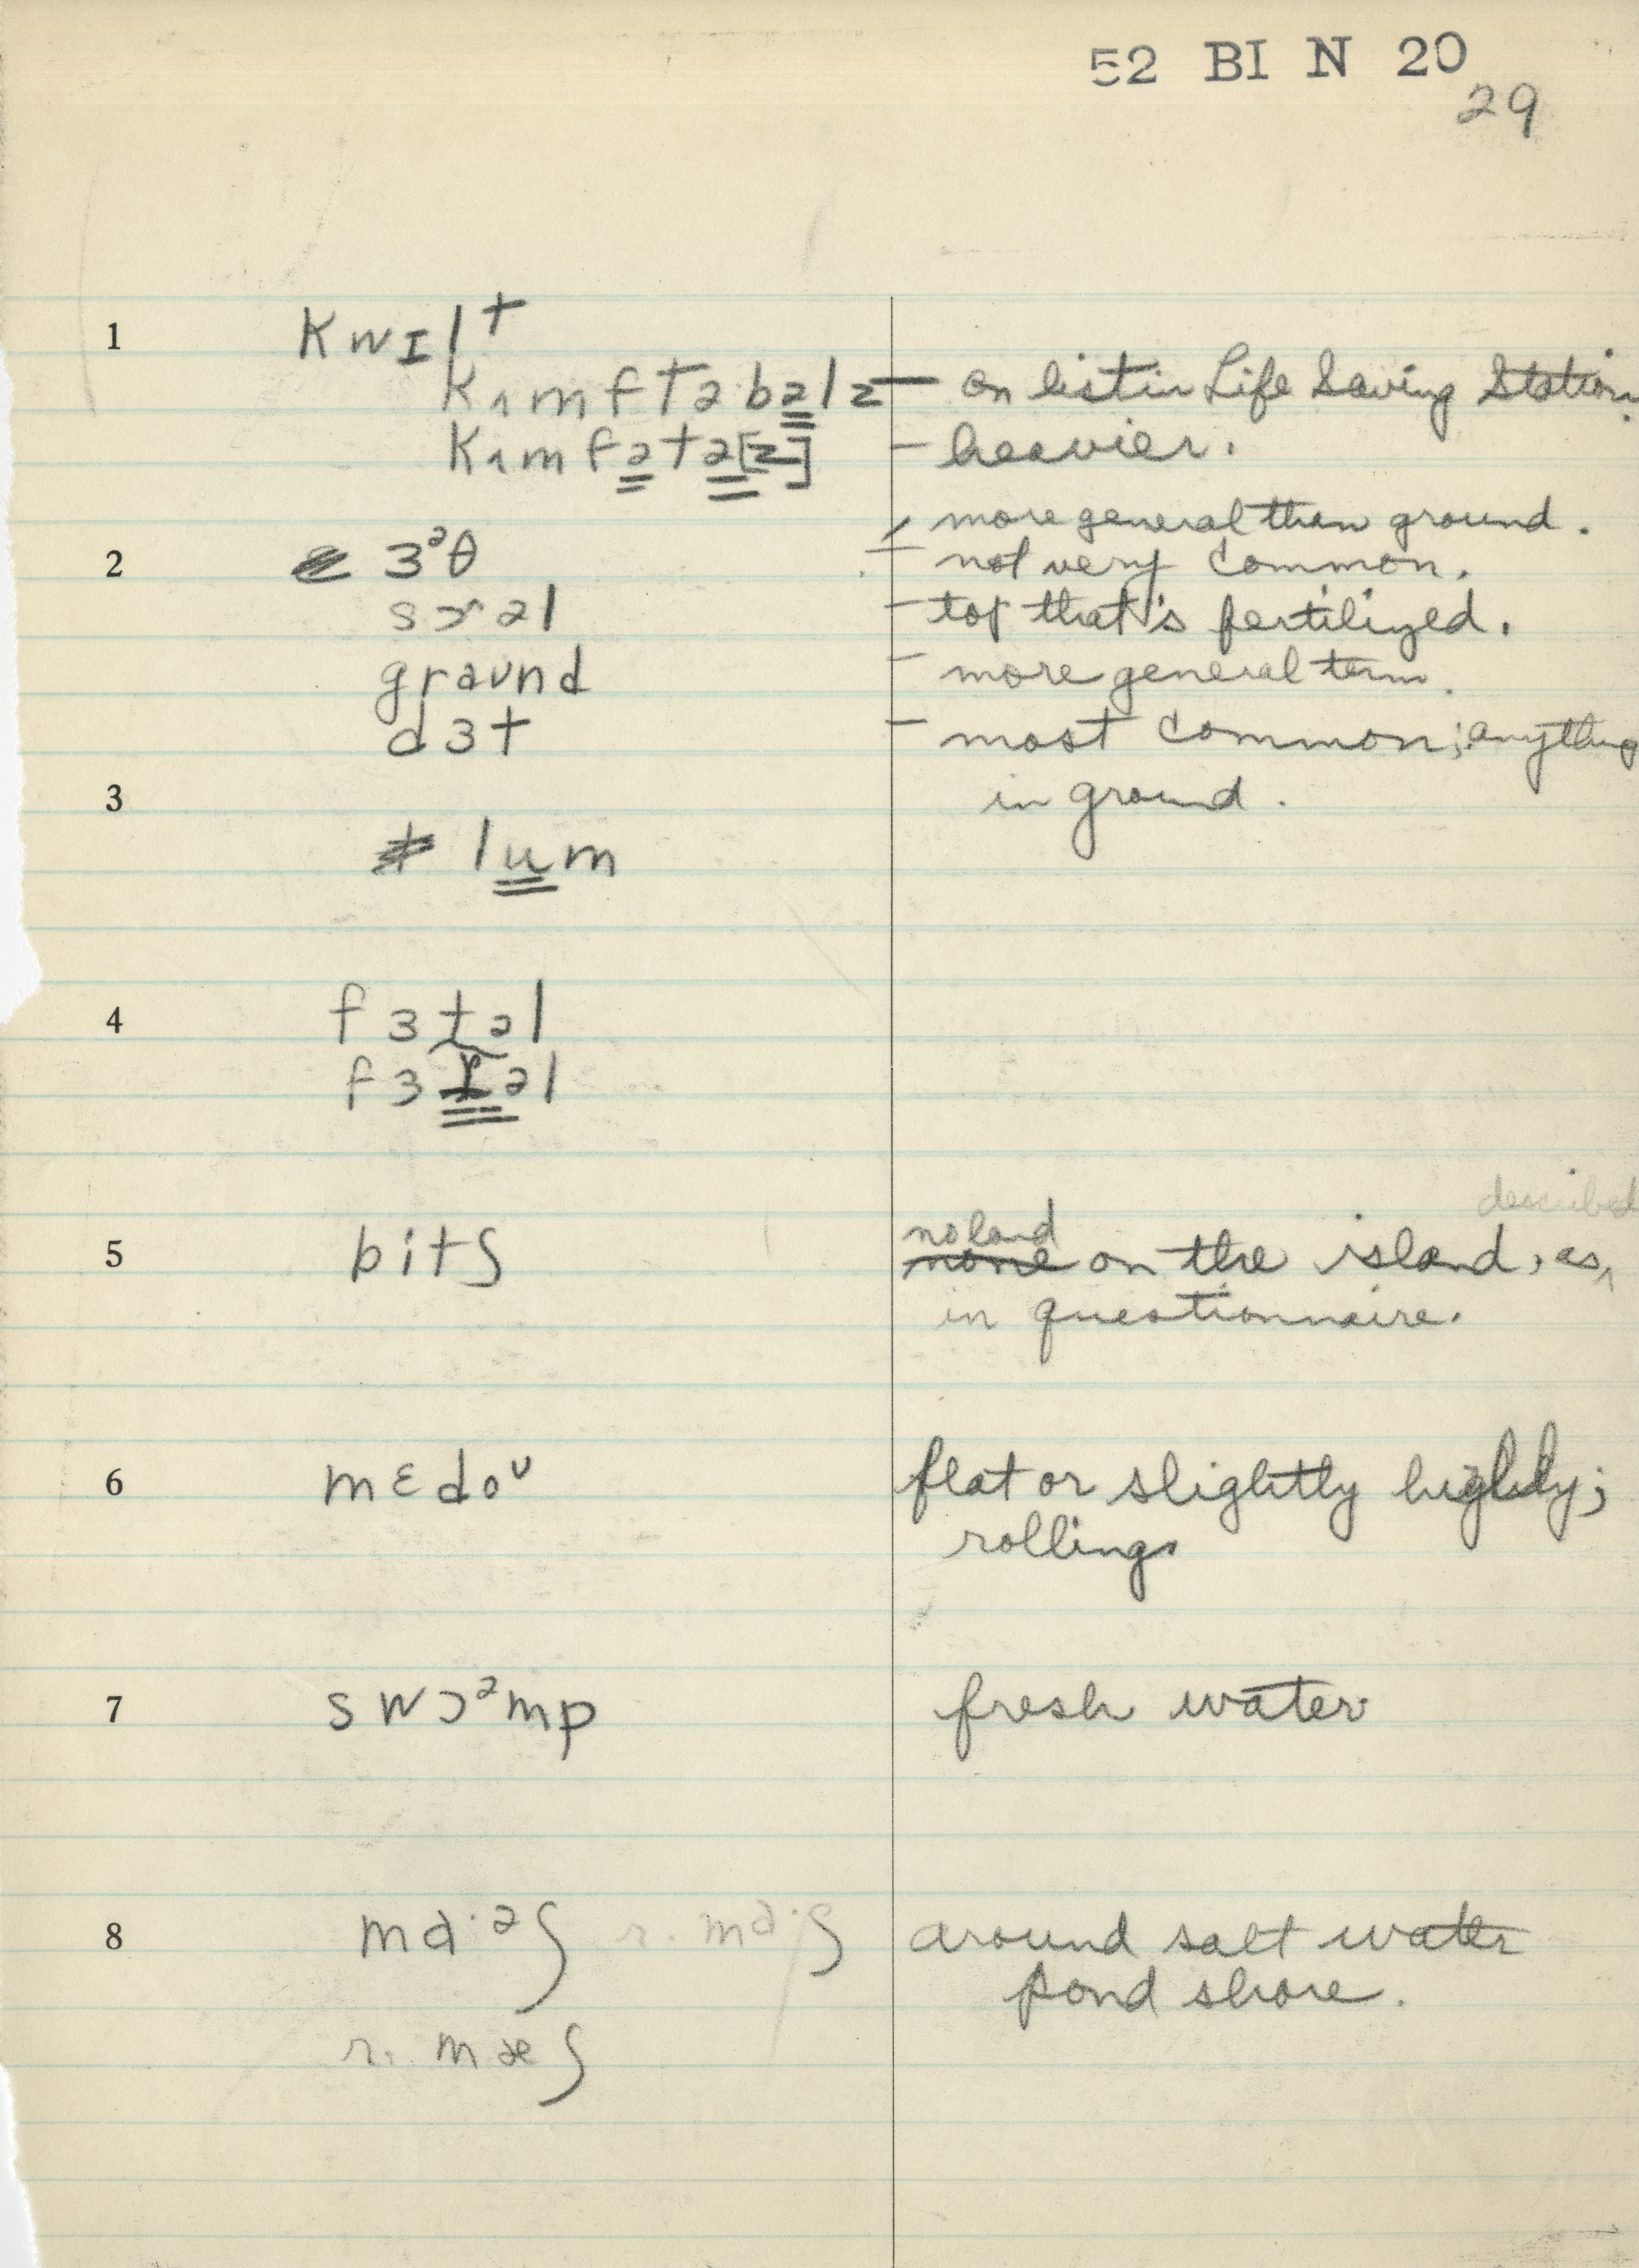 52 BI N 20
29
1 kwɪlt
kʌmftəbəlz — on list in Life Saving Station.
kʌmfətə[z] — heavier.
— more general than ground.
2 ɜᵊθ — not very common.
sɔəl — top that's fertilized.
graʊnd — more general term.
dɜt — most common; anything
3 in ground.
lum
4 fɜtəl
fɜɾəl
described
no land
5 bitʃ none on the island, as ^
in questionnaire.
6 mɛdoᶷ flat or slightly highly;
rolling.
7 swɔᵊmp fresh water
8 ma·ᵊʃ r. ma·ʃ around salt water
pond shore.
r. mæʃ